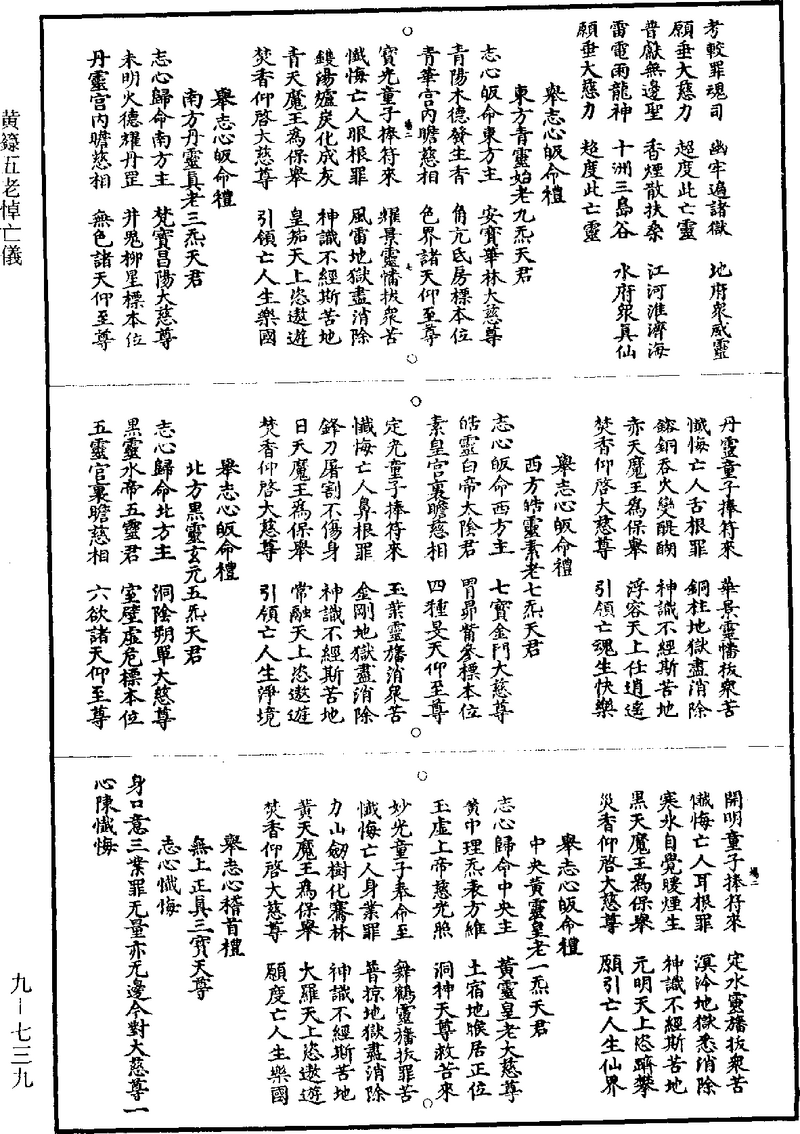 考較罪魂司　幽牢遍諸獄　地府衆威靈
願垂大慈力　超度此亡靈
普獻無邊聖　香煙散扶桑　江河淮濟海
雷電雨龍神　十洲三島谷　水府衆真仙
願垂大慈力　超度此亡靈
舉志心皈命禮
東方青靈始老九炁天君
志心皈命東方主　安寶華林大慈尊
青陽木德發生君　角亢氐房標本位
青華宮内瞻慈相　色界諸天仰至尊
寶光童子捧符來　耀景靈旛拔衆苦
懺悔亡人眼根罪　風雷地獄盡消除
鑊湯爐炭化成灰　神識不經斯苦地
青天魔王為保舉　皇笳天上恣遨遊
焚香仰啓大慈尊　引領亡人生樂國
舉志心皈命禮
南方丹靈真老三炁天君
志心歸命南方主　梵寶昌陽大慈尊
朱明火德耀丹罡　井鬼柳星標本位
丹靈宮内瞻慈相　無色諸天仰至尊
丹靈童子捧符來　華景靈旛拔衆苦
懺悔亡人舌根罪　銅柱地獄盡消除
鎔銅吞火變醍醐　神識不經斯苦地
赤天魔王為保舉　浮容天上任逍遙
焚香仰啓大慈尊　引領亡魂生快樂
舉志心皈命禮
西方皓靈素老七炁天君
志心皈命西方主　七寶金門大慈尊
皓靈白帝太陰君　胃昴觜參標本位
素皇宮裏瞻慈相　四種旻天仰至尊
定光童子捧符來　玉葉靈旛消衆苦
懺悔亡人鼻根罪　金剛地獄盡消除
鋒刀屠割不傷身　神識不經斯苦地
日天魔王為保舉　常融天上恣遨遊
焚香仰啓大慈尊　引領亡人生淨境
舉志心皈命禮
北方黑靈玄元五炁天君
志心歸命北方主　洞陰朔單大慈尊
黑靈水帝五靈君　室壁虛危標本位
五靈宮裏瞻慈相　六欲諸天仰至尊
開明童子捧符來　定水靈旛拔衆苦
懺悔亡人耳根罪　溟泠地獄悉消除
寒氷自覺暖煙生　神識不經斯苦地
黑天魔王為保舉　元明天上恣躋攀
焚香仰啓大慈尊　願引亡人生仙界
舉志心皈命禮
中央黃靈皇老一炁天君
志心歸命中央主　黃靈皇老大慈尊
黃中理炁表方維　土宿地睺居正位
玉虛上帝慈光照　洞神天尊救苦來
妙光童子奉命至　舞鶴靈旛拔罪苦
懺悔亡人身業罪　普掠地獄盡消除
刀山劒樹化騫林　神識不經斯苦地
黃天魔王為保舉　大羅天上恣遨遊
焚香仰啓大慈尊　願度亡人生樂國
舉志心稽首禮
無上正真三寶天尊
志心懺悔
身口意三業罪无量亦无邊今對大慈尊一
心陳懺悔
黃籙五老悼亡儀
九—七三九